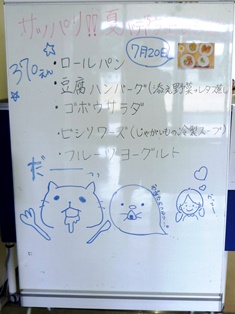 サッパリ!! 夏
7月20日
370えん
・ロールパン
・豆腐ハンバーグ(添え野菜・レタス
・ゴボウサラダ
・ビシソワーズ(じゃがいもの冷製スープ)
・フルーツヨーグルト
だーーっっ